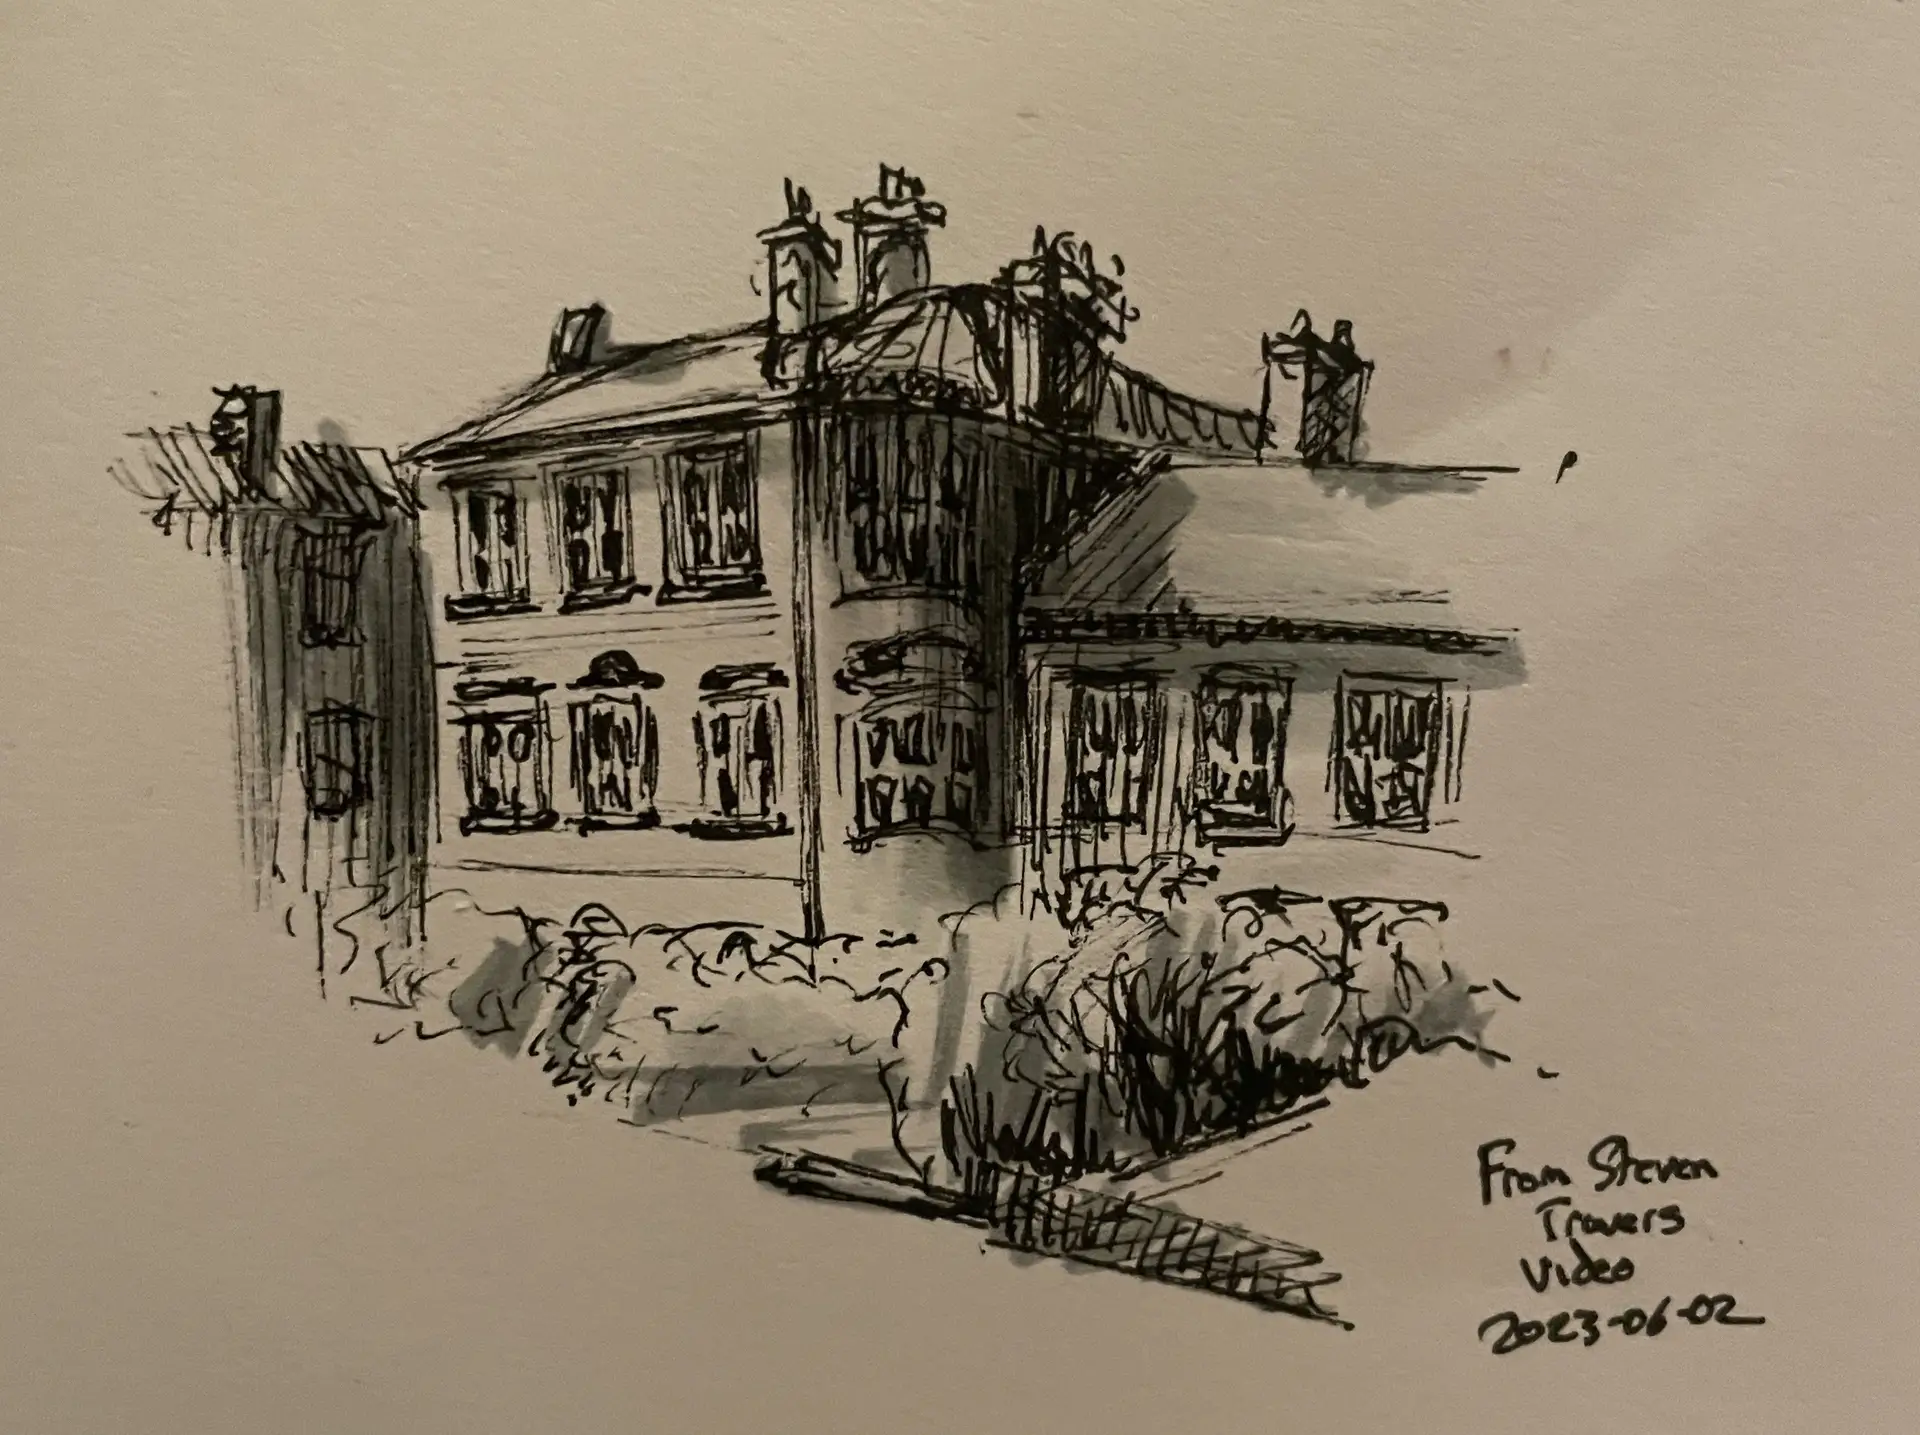 From Steven
Travers
Video
2023-06-02